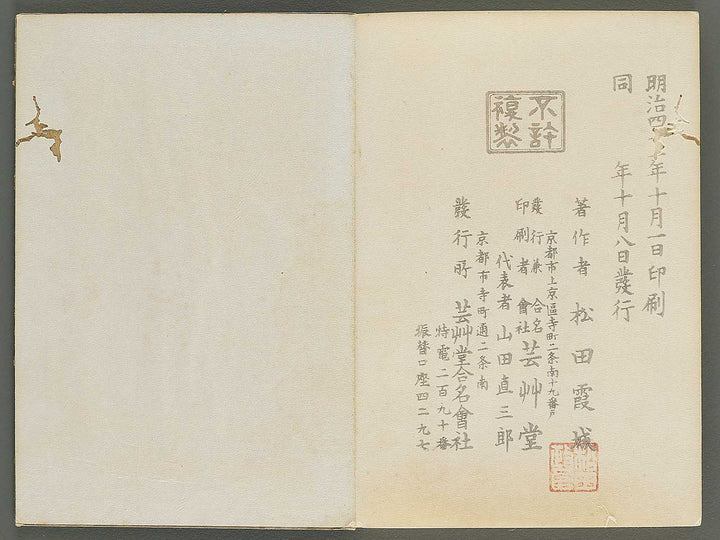 明治四十 年十月一日印刷
同 年十月八日發行
不許
複製
著作者 松田霞城
京都市上京區寺町二条南十九番戸
發行兼
印刷者
合名
會社
芸艸堂
代表者 山田直三郎
京都市寺町通二条南
發行所 芸艸堂合名會社
特電二百九十番
振替口座四二九七